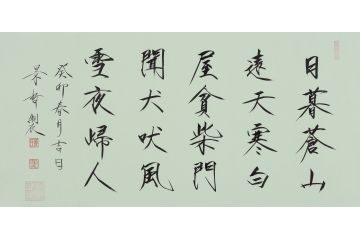 日暮蒼山
遠天寒白
屋貧柴門
聞犬吠風
雪夜歸人
癸卯春月吉日